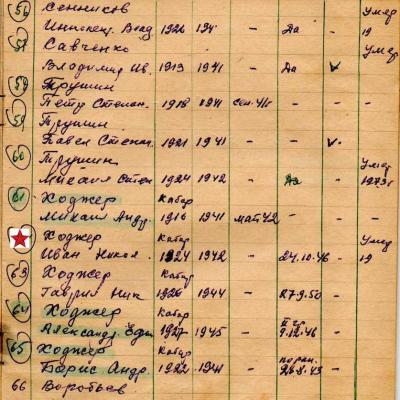 56 Сенников Умер
Иннокен. Влад. 1926 194 - Да - 19
57 Савченко Умер
Владимир Ив. 1919 1941 - Да v
58 Трушин
Петр Степан. 1918 1941 сен.41г - - -
59 Трушин
Павел Степан. 1921 1941 - - v.
60 Трушин Умер
Михаил Степ 1924 1942 - Да - 1973г
61 Ходжер
Михаил Андр. 1916 1941 май 42 - - -
Ходжер Умер
Иван Никол. 1924 1942 - 24.10.46 - 19
63 Ходжер
Гаврил Ник 1926 1944 - 27.9.50 -
64 Ходжер
Александр 1927 1945 - 9.12.46 -
65 Ходжер
Борис Андр. 1922 1941 - 26.8.43 -
66 Воробьев